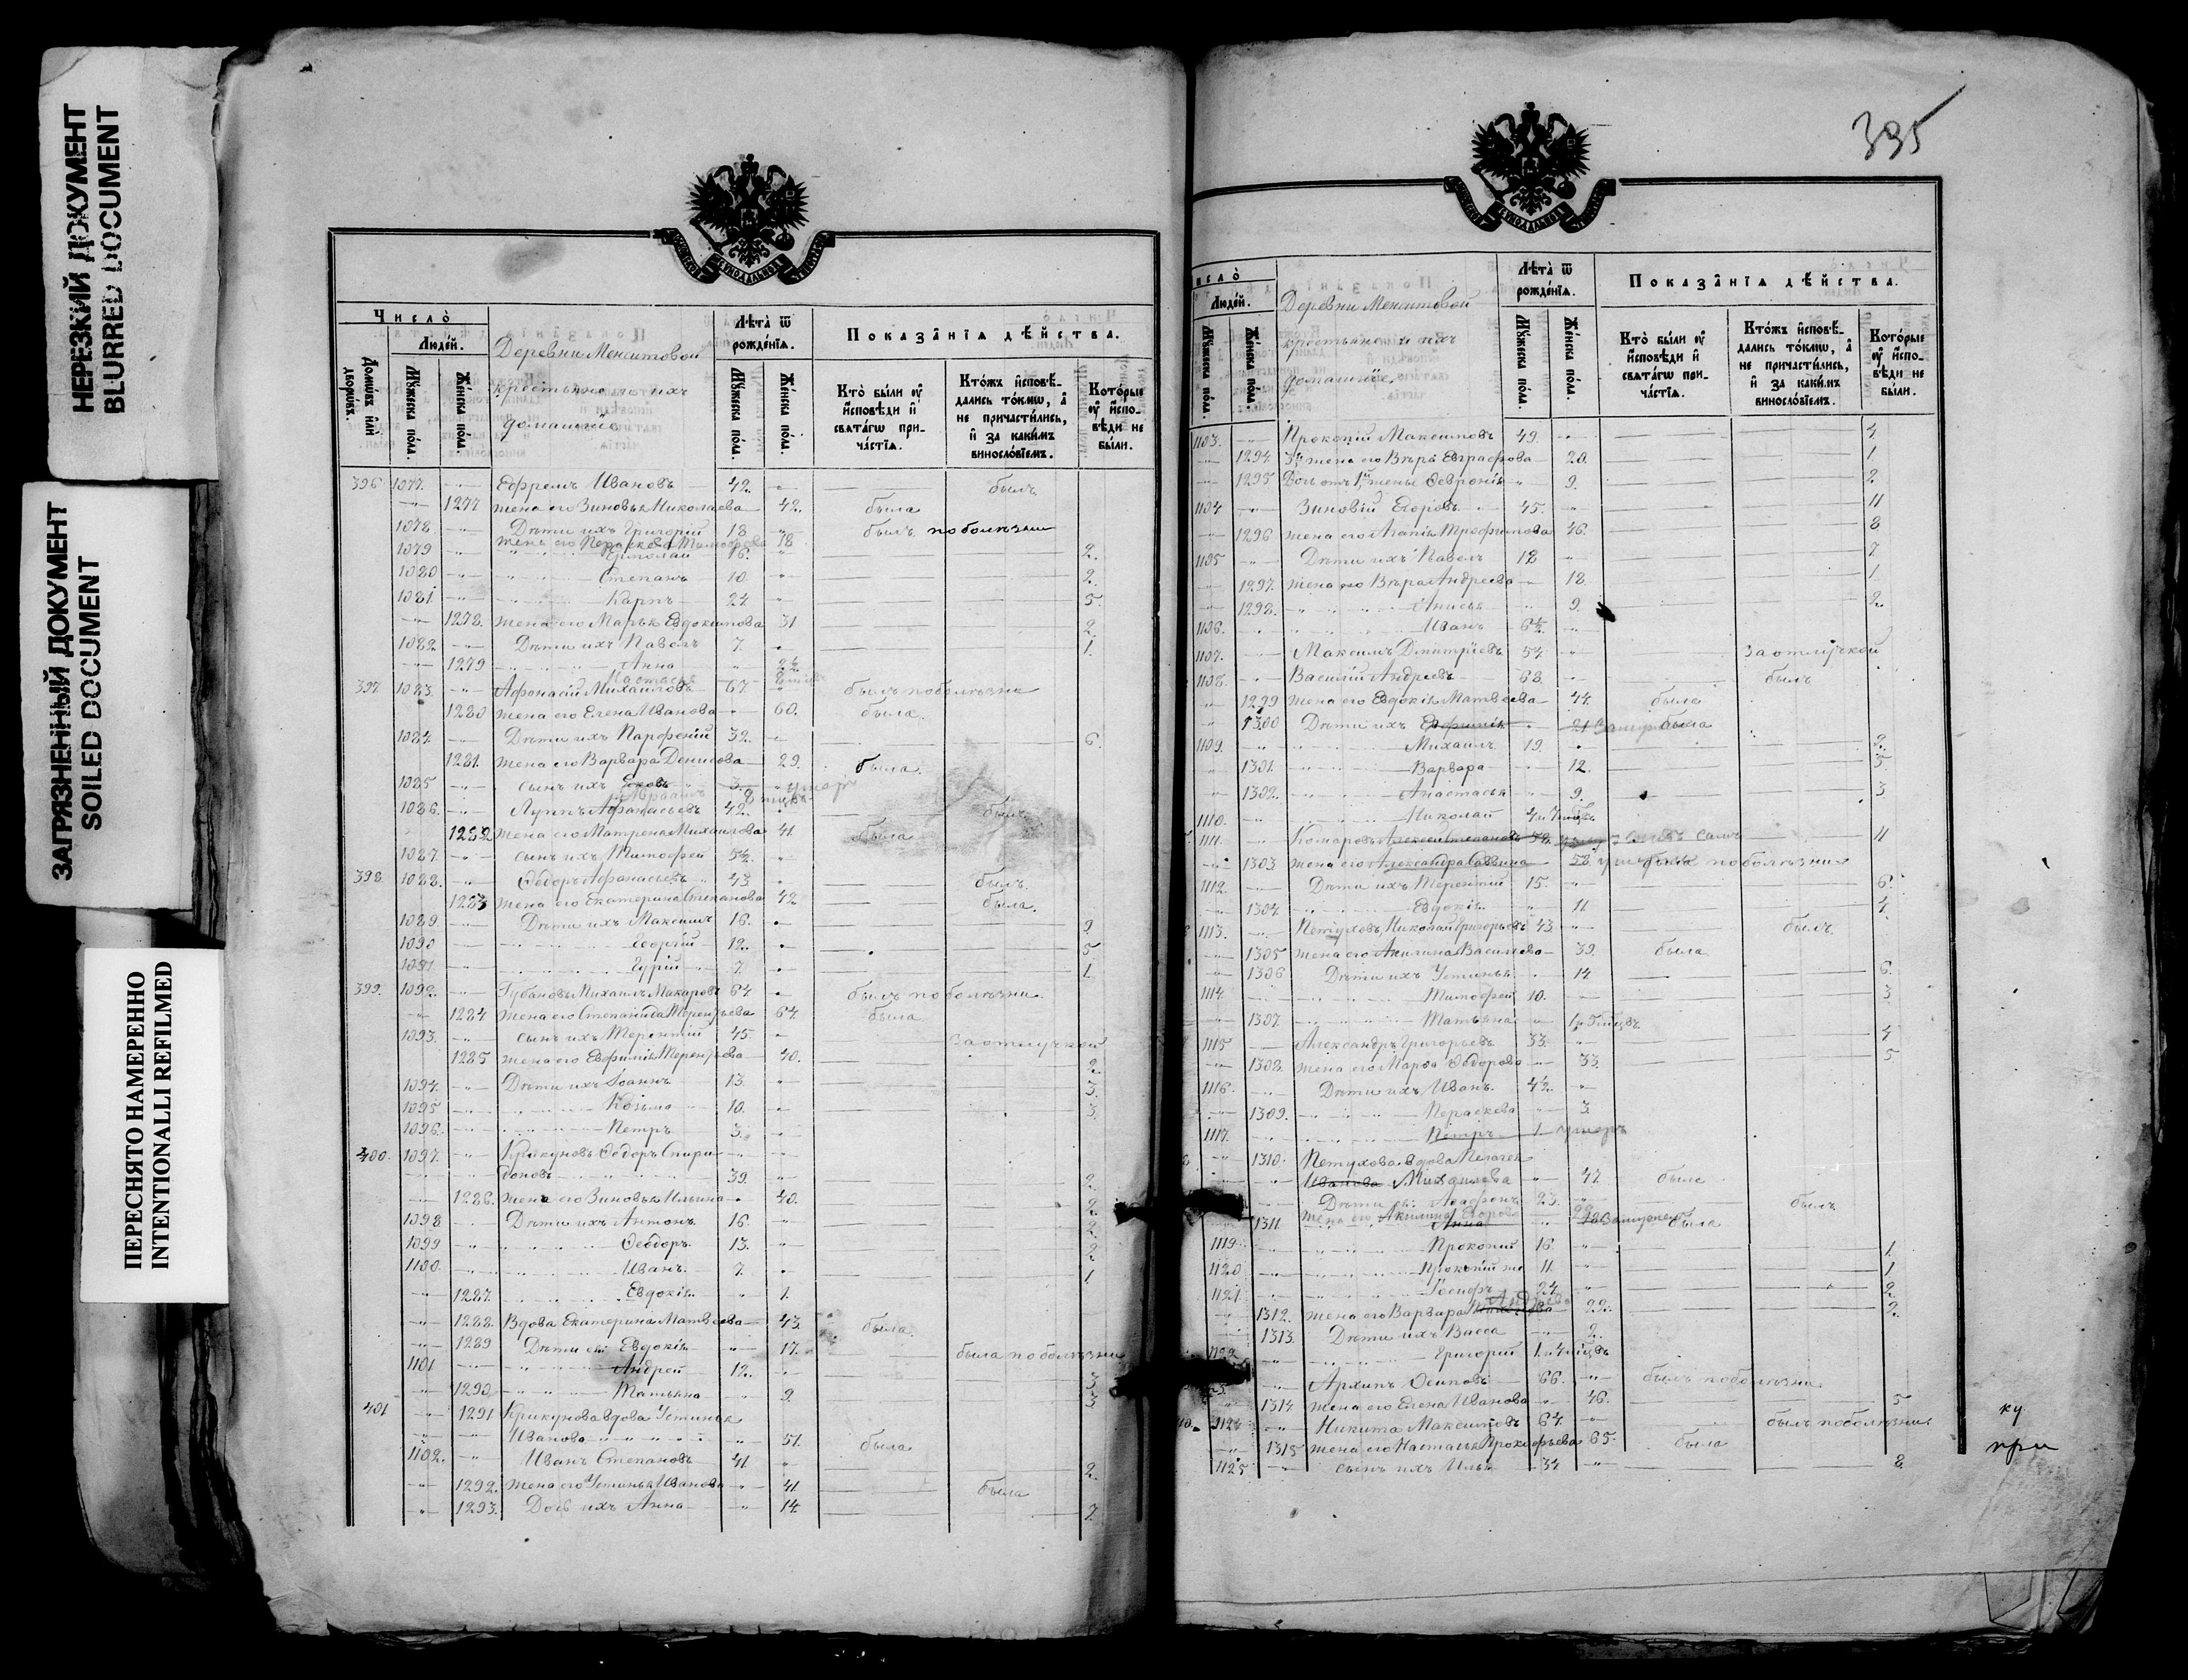 НЕРЕЗКИЙ ДОКУМЕНТ
BLURRED DOCUMENT
ЗАГРЯЗНЕННЫЙ ДОКУМЕНТ
SOILED DOCUMENT
ПЕРЕСНЯТО НАМЕРЕННО
INTENTIONALLI REFILMED
Число̀
Люде́й.
Домѡ́въ и҆лѝ дворѡ́въ.
Мꙋ́жеска по́ла.
Же́нска по́ла.
Деревни Менситовой
крестьяне и ихъ
домашніе
Лѣта̀ ѿ рожде́нїѧ.
Мꙋ́жеска по́ла.
Же́нска по́ла.
Показа̑нїѧ дѣ́йства.
Кто̀ бы́ли ᲂу҆
и҆сповѣ́ди и҆
свѧта́гѡ при-
ча́стїѧ.
Кто́жъ и҆сповѣ́-
дались то́кмѡ, а҆
не причасти́лись,
и҆ за каки́мъ
винословїемъ.
Кото́рые
ᲂу҆ и҆спо-
вѣ́ди не
бы́ли.
396 1077. Ефремъ Ивановъ 42. былъ
1277 жена его Зиновья Николаева 42. была
1078 Дѣти ихъ Григорій 18 былъ по болѣзни
жена его 18
1079 Николай 16. 2.
1080 Степанъ 10. 2.
1081. Карпъ 24 5.
1278. жена его Марья Евдокимова 31 2.
1082. Дѣти ихъ Павелъ 7. 1.
1279 Анна 2½
Настасья
397. 1083. Афонасій Михайловъ 67 былъ по болѣзни
1280 жена его Елена Иванова 60. была.
1084. Дѣти ихъ Парфеній 32. 6.
1281. жена его Варвара Денисова 29. была.
1085 сынъ ихъ 3. умеръ
1086. Луппъ Афанасьевъ 42. былъ
1282 жена его Матрена Михайлова 41. была
1087. сынъ ихъ Тимофей 5½.
398. 1088. Ѳедоръ Афанасьевъ 43. былъ.
1283 жена его Екатерина Степанова 42 была.
1089. Дѣти ихъ Максимъ 16. 9.
1090 Георгій 12. 5.
1091. Гурій 7. 1.
399. 1092. Губановъ Михаилъ Макаровъ 64. былъ по болѣзни.
1284 жена его Степанида Терентьева 64. была
1093. сынъ ихъ Терентій 45. за отлучкой
1285 жена его Евфимія Терентьева 40. 2.
1094. Дѣти ихъ Іоаннъ 13. 3.
1095 Козьма 10. 3.
1096. Петръ 3.
400. 1097. Крикуновъ Ѳедоръ Спири-
доновъ 39. 2.
1286. жена его Зиновья Ильина 40. 2.
1098 Дѣти ихъ Антонъ 16. 2.
1099 Ѳеодоръ 13. 2.
1100. Иванъ 7. 1
1287. Евдокія 1.
1288. Вдова Екатерина Матвѣева 43. была.
1289 Дѣти ея: Евдокія 17. была по болѣзни
1101 Андрей 12. 3
1290 Татьяна 9. 3
401 1291 Крикунова вдова Устинья
Иванова 51. была
1102. Иванъ Степановъ 41 2.
1292. жена его Устинья Иванова 41 была
1293. Дочь ихъ Анна 14. 7.
335
Люде́й.
Мꙋ́жеска по́ла.
Же́нска по́ла.
Деревни Менситовой
крестьяне и ихъ
домашніе.
Лѣта̀ ѿ рожде́нїѧ.
Мꙋ́жеска по́ла.
Же́нска по́ла.
Показа̑нїѧ дѣ́йства.
Кто̀ бы́ли ᲂу҆
и҆сповѣ́ди и҆
свѧта́гѡ при-
ча́стїѧ.
Кто́жъ и҆сповѣ́-
дались то́кмѡ, а҆
не причасти́лись,
и҆ за каки́мъ
винословїемъ.
Кото́рые
ᲂу҆ и҆спо-
вѣ́ди не
бы́ли.
1103. Прокопій Максимовъ 49. 4.
1294 жена его Вѣра Евграфова 20. 1.
1295 Дочь отъ 1й жены Февронія 9. 2
1104 Зиновій Егоровъ 45. 11
1296 жена его Агапія Трофимова 46. 8
1105 Дѣти ихъ Павелъ 18 7
1297. жена его Вѣра Андреева 18. 1.
1298. Анисья 9. 2.
1106. Иванъ 6½.
1107. Максимъ Дмитріевъ 54. за отлучкой
1108. Василій Андреевъ 63. былъ
1299 жена его Евдокія Матвѣева 44. была
1300 Дѣти ихъ Евфимія 21 была
1109. Михаилъ 19. 2.
1301. Варвара 12. 5
1302. Анастасья 9. 3
1110. Николай
1111. Комаровъ Алексей Степановъ 11
1303 жена его Александра Саввина 58. была по болѣзни
1112. Дѣти ихъ Терентій 15. 6.
1304. Евдокія 11 4.
1113. Петуховъ Николай Григорьевъ 43 былъ
1305 жена его Акилина Васильева 39. была
1306 Дѣти ихъ Устинья 14. 6.
1114. Тимофей 10. 3
1307. Татьяна
1115 Александръ Григорьевъ 33. 4
1308. жена его Марѳа Ѳедорова 33. 5
1116. Дѣти ихъ Иванъ 4½.
1309. Пераскева 3.
1117. Петръ 1. умеръ
1310. Петухова вдова Пелагея
Иванова Михайлова 47. была
Дѣти ея: Агафонъ 23. былъ
жена его Акилина Егорова
1311 Анна была
1119. Прокопій 16. 1.
1120 Прокопій же 11. 1
1121 Іосифъ 24. 2
1312. жена его Варвара 22. 2.
1313. Дѣти ихъ Васса 2.
1122 Григорій
Архипъ Осиповъ 66. былъ по болѣзни
1314 жена его Елена Иванова 46. 5
1124 Никита Максимовъ 64. былъ по болѣзни
1315 жена его Настасья Прокофьева 65. была
1125 сынъ ихъ Илья 34 8.
ку
при